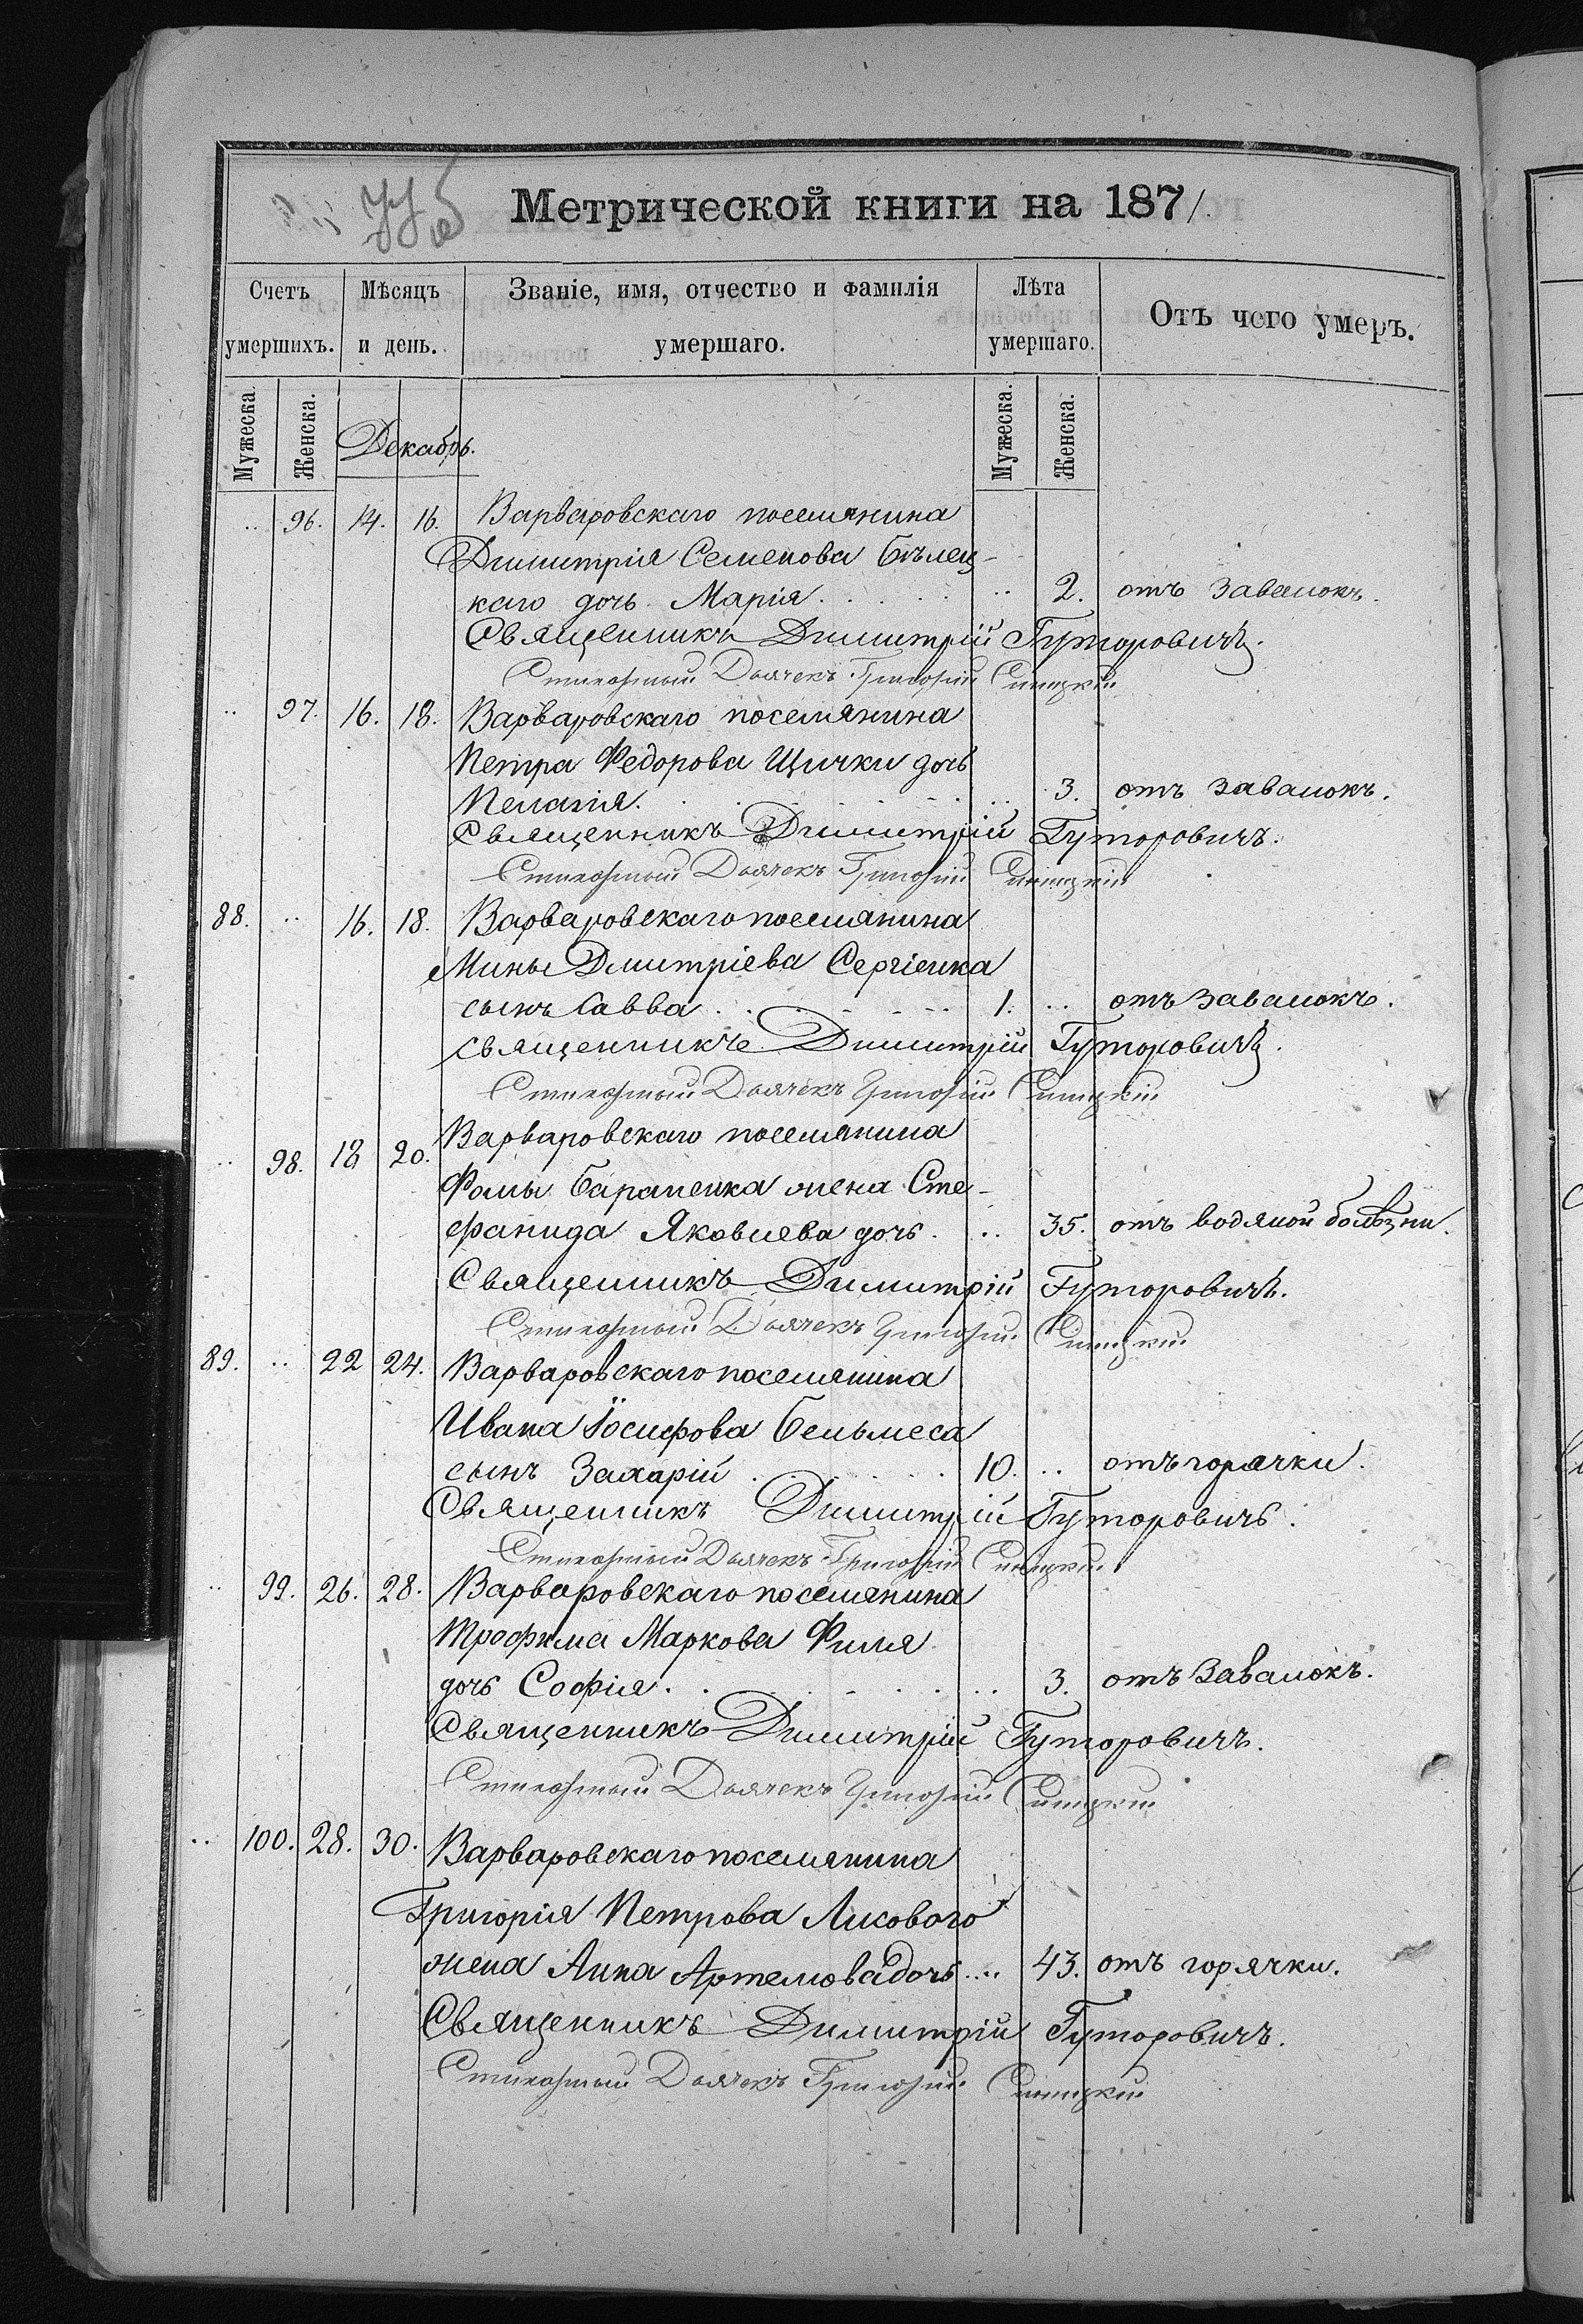 Метрической книги на 1871.
Счетъ умершихъ.
Мѣсяцъ и день.
Званіе, имя, отчество и фамилія умершаго.
Лѣта умершаго.
Отъ чего умеръ.
Мужеска. Женска. Декабрь. Мужеска. Женска.
.. 96. 14. 16. Варваровскаго поселянина
Димитрія Семенова Бѣлец-
каго дочь Марія. .. 2. отъ завалокъ.
Священникъ Димитрій Гуторовичъ.
Стихарный Дьячекъ Григорій
.. 97. 16. 18. Варваровскаго поселянина
Петра Федорова Щички дочь
Пелагія. ... 3. отъ завалокъ.
Священникъ Димитрій Гуторовичъ.
Стихарный Дьячекъ Григорій
88. .. 16. 18. Варваровскаго поселянина
Мины Дмитріева Сергіенка
сынъ Савва. 1. .. отъ завалокъ.
Священникъ Димитрій Гуторовичъ.
Стихарный Дьячекъ Григорій
.. 98. 18 20. Варваровскаго поселянина
Фомы Бараненка жена Сте-
фанида Яковлева дочь. .. 35. отъ водяной болѣзни.
Священникъ Димитрій Гуторовичъ.
Стихарный Дьячекъ Григорій
89. .. 22 24. Варваровскаго поселянина
Ивана Іосифова Бельмеса
сынъ Захарій 10. .. отъ горячки.
Священникъ Димитрій Гуторовичъ.
Стихарный Дьячекъ Григорій
.. 99. 26. 28. Варваровскаго поселянина
Трофима Маркова Филя
дочь Софія. .. 3. отъ завалокъ.
Священникъ Димитрій Гуторовичъ.
Стихарный Дьячекъ Григорій
.. 100. 28. 30. Варваровскаго поселянина
Григорія Петрова Лисового
жена Анна Артемова дочь .... 43. отъ горячки.
Священникъ Димитрій Гуторовичъ.
Стихарный Дьячекъ Григорій